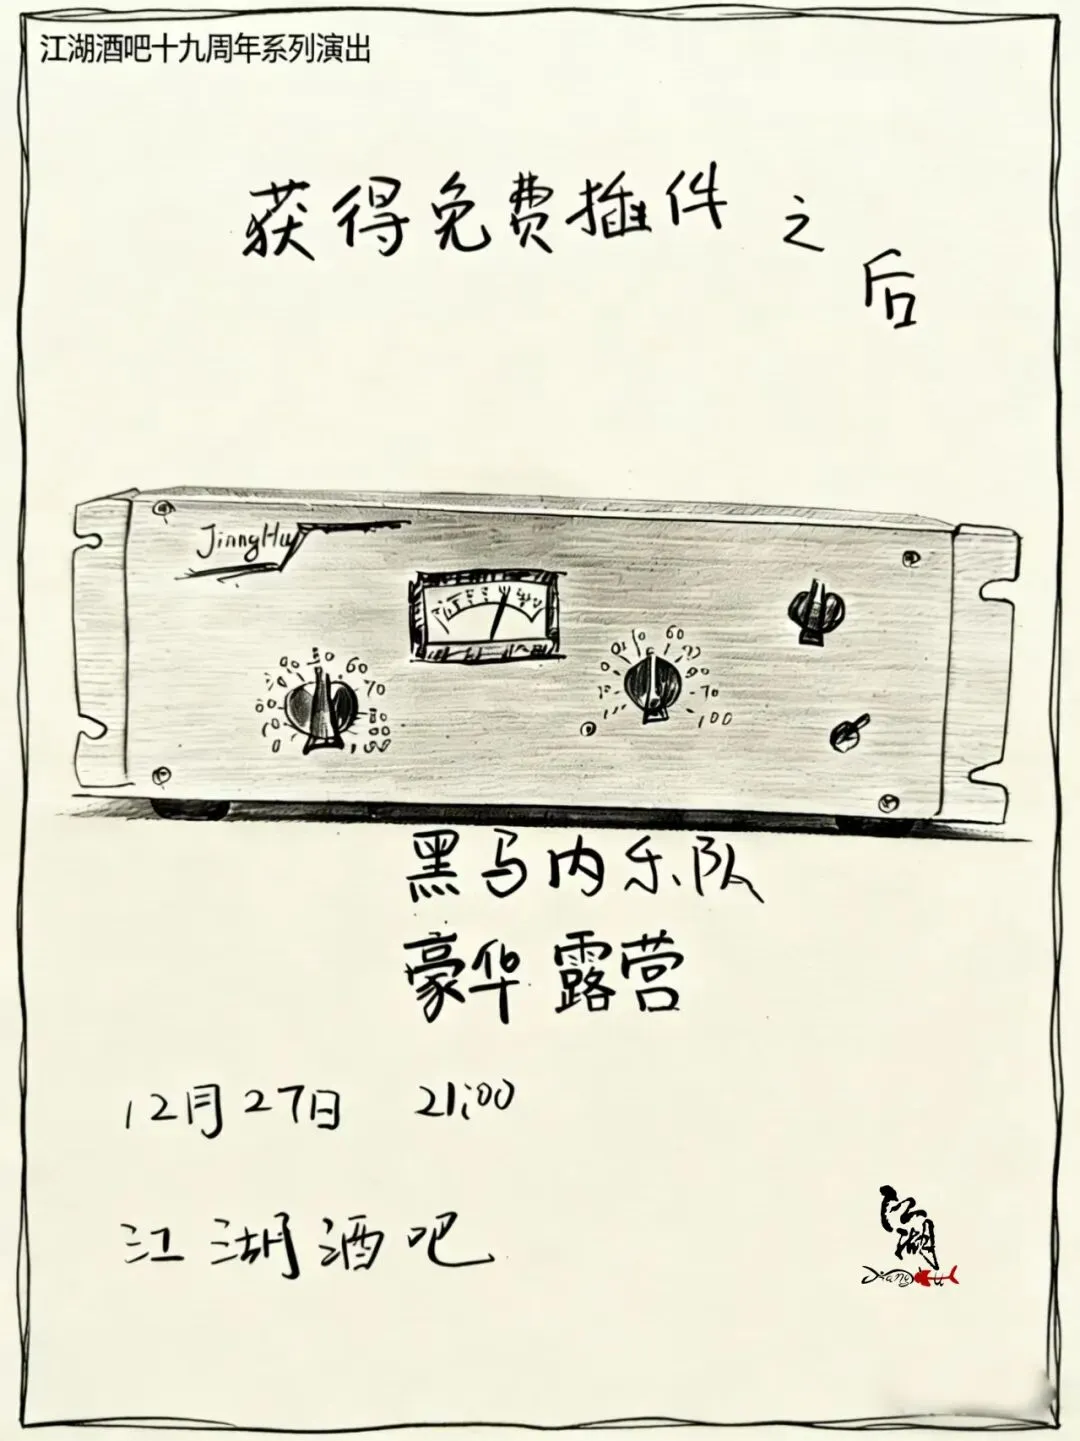 江湖酒吧十九周年系列演出
获得免费插件之后
JiangHu
黑马内乐队
豪华露营
12月27日 21:00
江湖酒吧
江湖
JiangHu